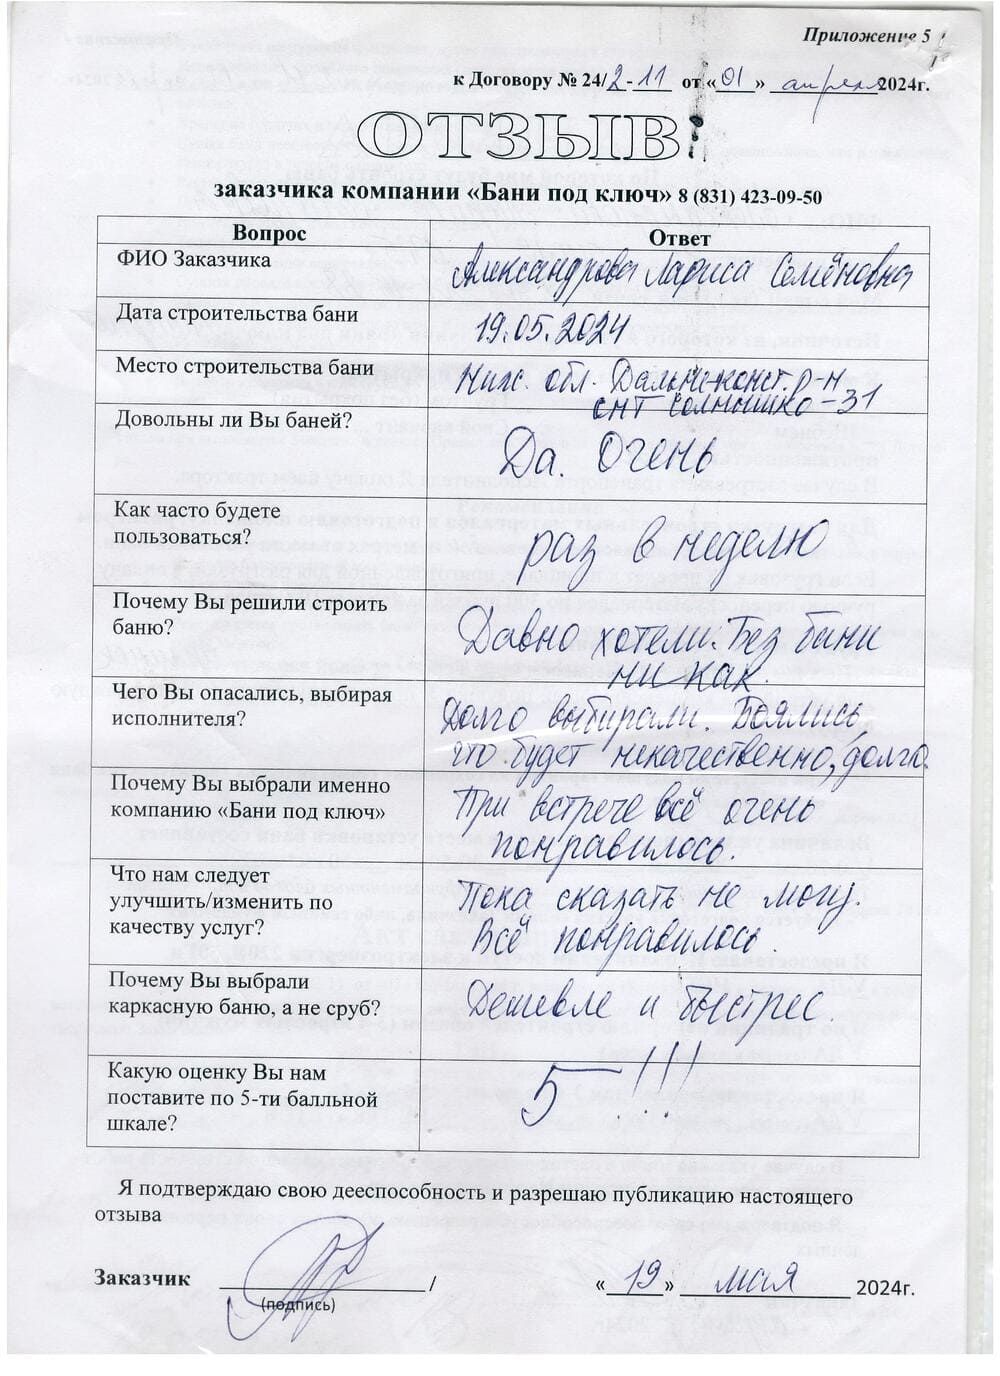 Приложение 5
к Договору № 24/2-11 от «01» апреля 2024г.
ОТЗЫВ
заказчика компании «Бани под ключ» 8 (831) 423-09-50
Вопрос Ответ
ФИО Заказчика Александрова Лариса Семёновна
Дата строительства бани 19.05.2024
Место строительства бани Ниж. обл. Дальн-конст. р-н
снт Солнышко-31
Довольны ли Вы баней? Да. Очень
Как часто будете
пользоваться? раз в неделю
Почему Вы решили строить
баню? Давно хотели. Без бани
ни как.
Чего Вы опасались, выбирая
исполнителя? Долго выбирали. Боялись,
что будет некачественно, долго.
Почему Вы выбрали именно
компанию «Бани под ключ» При встрече всё очень
понравилось.
Что нам следует
улучшить/изменить по
качеству услуг? Пока сказать не могу.
Всё понравилось.
Почему Вы выбрали
каркасную баню, а не сруб? Дешевле и быстрее.
Какую оценку Вы нам
поставите по 5-ти балльной
шкале? 5!!!
Я подтверждаю свою дееспособность и разрешаю публикацию настоящего
отзыва
Заказчик / «19» мая 2024г.
(подпись)